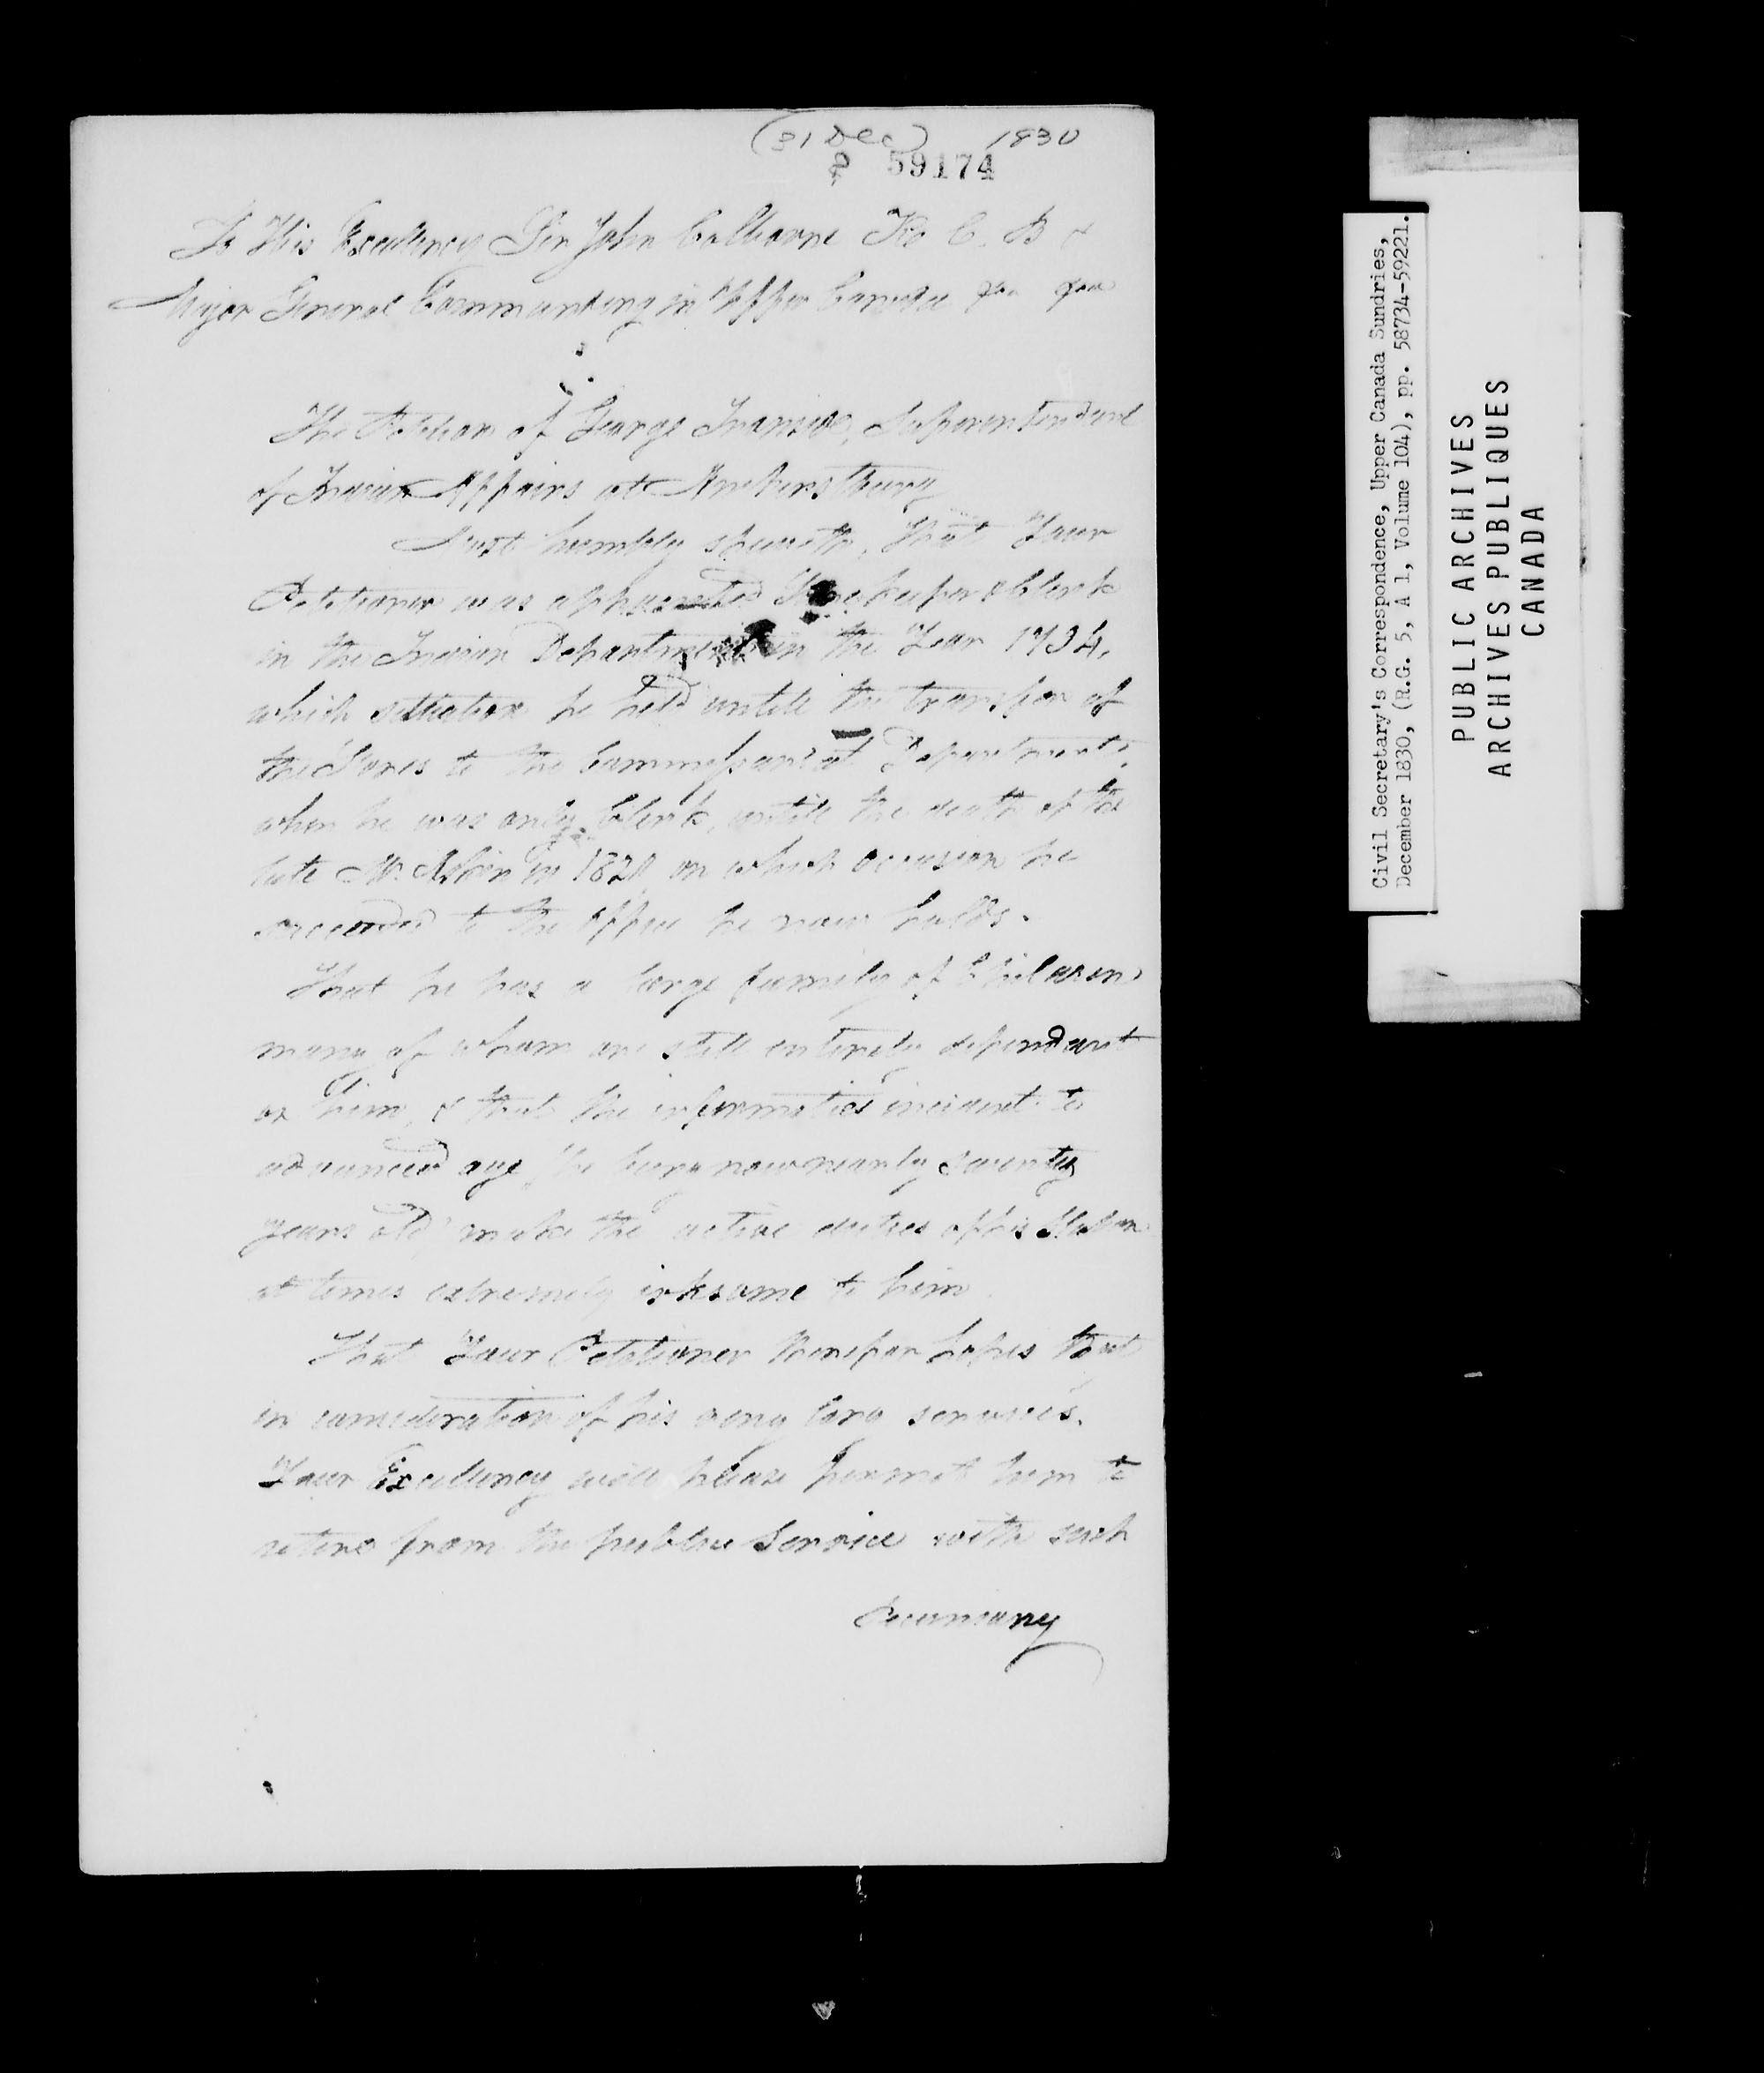 (31 Dec) 1830
59174
To His Excellency Sir John Colborne K. C. B &
Major General Commanding in Upper Canada &c &c
The Petition of George Ironside, Superintendent
of Indian Affairs at Amherstburg
Most humbly sheweth, That Your
Petitioner was appointed Storekeeper & Clerk
in the Indian Department in the Year 1794,
which situation he held untill the transfer of
the Stores to the Commissariat Department,
when he was only Clerk, untill the death of the
late Mr. in 1820 on which occasion he
succeeded to the Office he now holds.
That he has a large family of Children
many of whom are still entirely dependant
on him, & that the infirmities incident to
advanced age (he being now nearly seventy
years old) make the active duties of his Station
at times extremely irksome to him
That Your Petitioner therefor hopes that
in consideration of his very long services,
Your Excellency will please permit him to
retire from the public Service with such
Pecuniary
Civil Secretary's Correspondence, Upper Canada Sundries,
December 1830, (R.G. 5, A 1, Volume 104), pp. 58734-59221.
PUBLIC ARCHIVES
ARCHIVES PUBLIQUES
CANADA